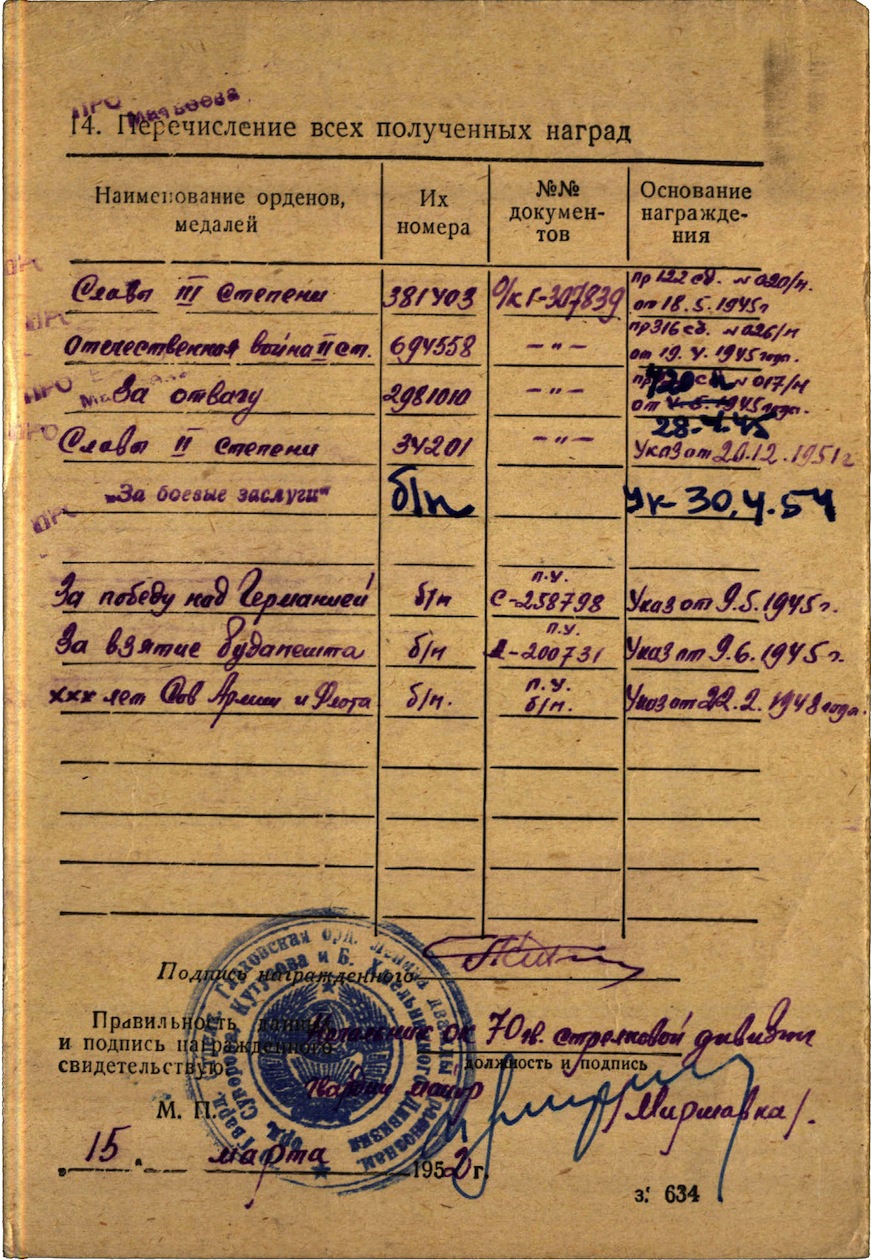 ПРО Матвеева
14. Перечисление всех полученных наград
Наименование орденов, медалей
Их номера
№№ документов
Основание награждения
Славы III степени 381403 О/к Г-307839 пр 122 сд. №020/н. от 18.5.1945г
Отечественная война II ст. 694558 -"- пр 316 сд. №026/н от 19.V.1945 года.
За отвагу 2981010 -"- №017/н от 28.4.45
Славы II степени 34201 -"- Указ от 20.12.1951г
„За боевые заслуги" б/н Ук 30.4.54
За победу над Германией б/н п.у. С-258798 Указ от 9.5.1945г.
За взятие Будапешта б/н п.у. А-200731 Указ от 9.6.1945г.
ххх лет Сов Армии и Флота б/н. п.у. б/н. Указ от 22.2.1948 года.
Подпись награжденного
Правильность данных
и подпись награжденного
свидетельствую
Начальник ОК 70 гв. стрелковой дивизии
должность и подпись
гвардии майор
/Миршавка/.
М. П.
„15" марта 1952г.
з. 634